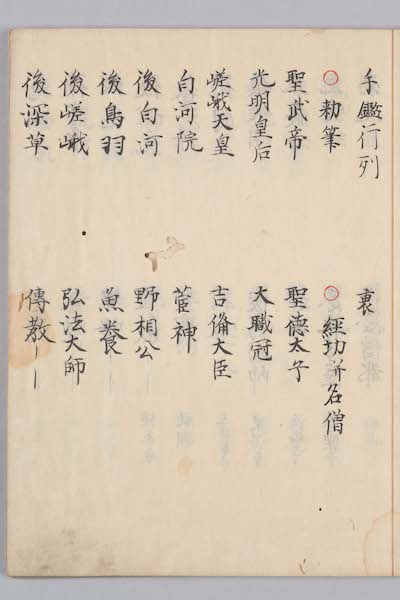 手鑑行列
○勅筆
聖武帝
光明皇后
嵯峨天皇
白河院
後白河
後鳥羽
後嵯峨
後深草
裏
○經切并名僧
聖德太子
大職冠
吉備大臣
菅神
野相公
魚養〡〡
弘法大師
傳教〡〡